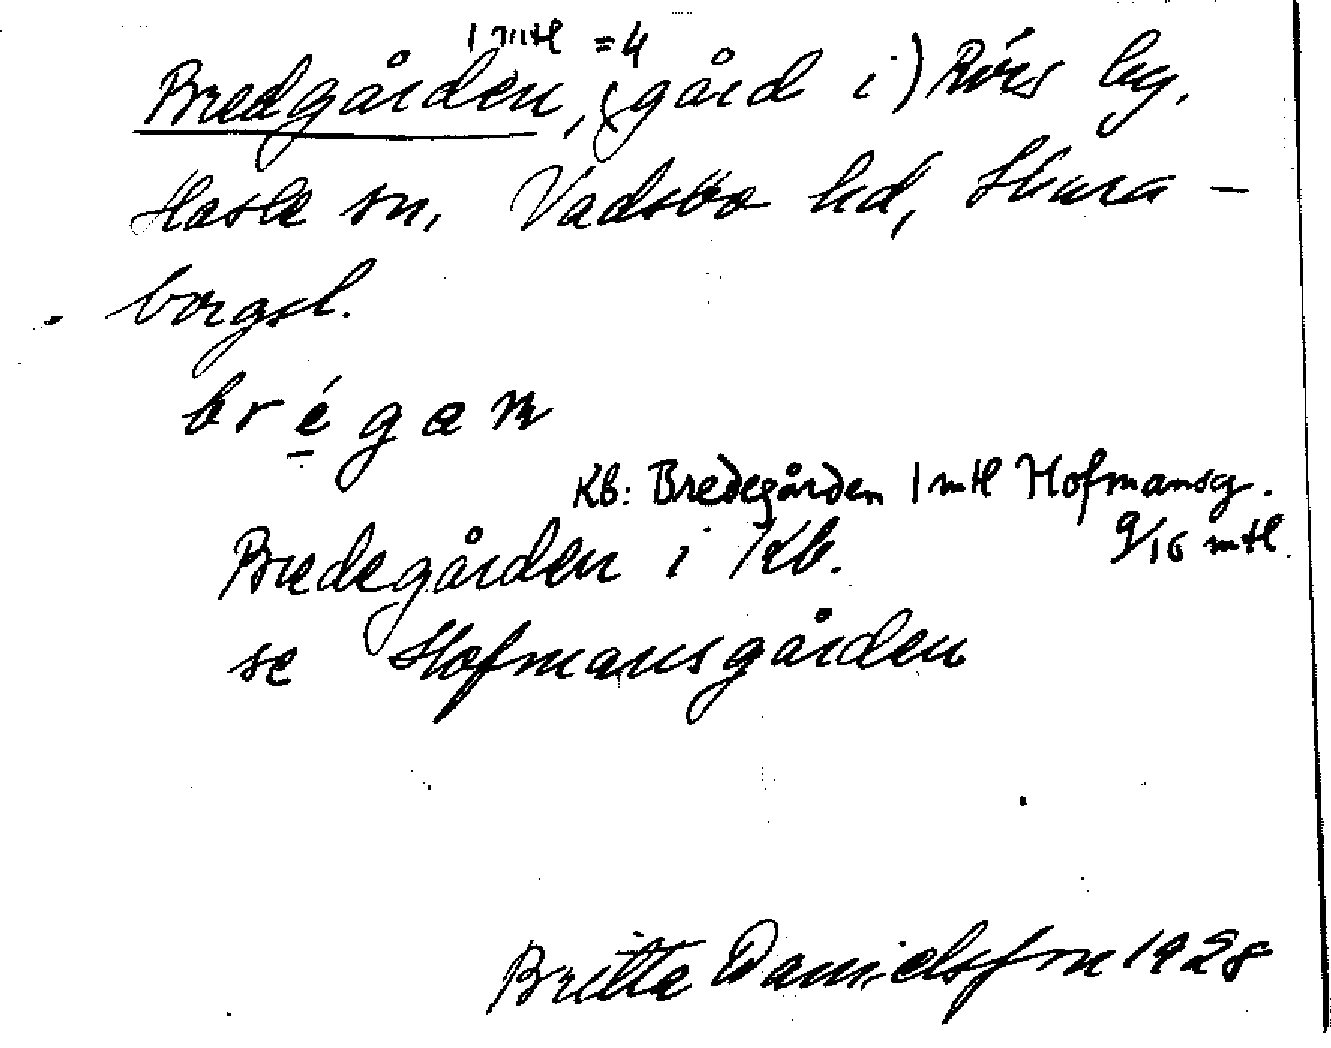 1 mtl = 4
Bredgården, (gård i) Rörs by,
Hasle sn, Vadsbo hd, Skara-
borgsl.
brégan
Kb: Bredegården 1 mtl Hofmansg.
9/16 mtl.
Bredegården i Kb.
se Hofmansgården
Britta Danielsson 1928